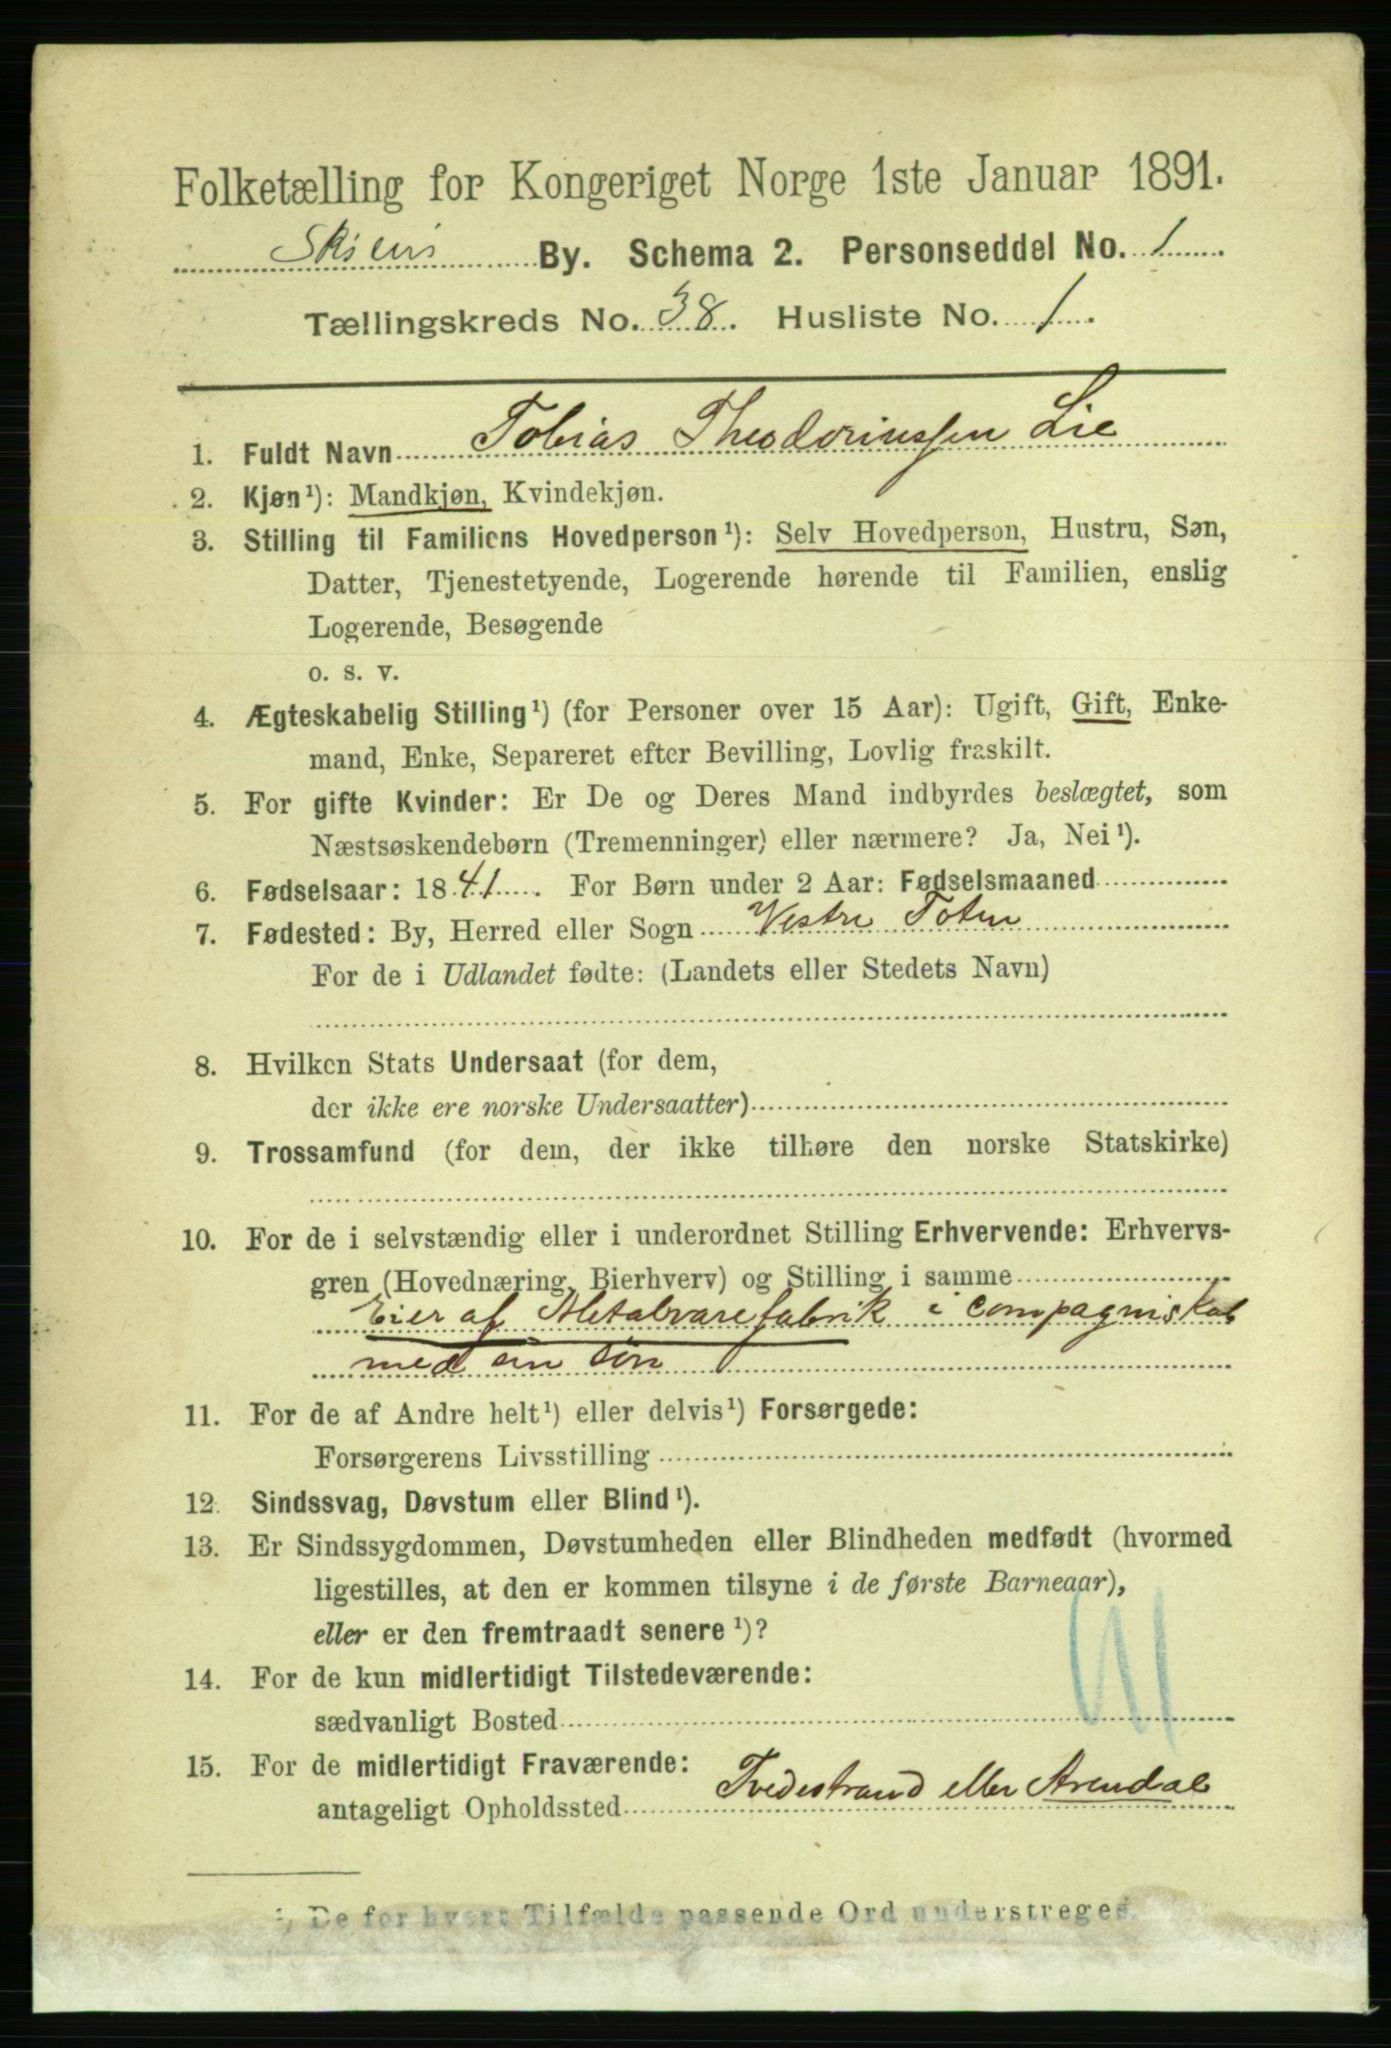 Folketælling for Kongeriget Norge 1ste Januar 1891.
Skiens By. Schema 2. Personseddel No. 1
Tællingskreds No. 38. Husliste No. 1.
1. Fuldt Navn Tobias Theodorinussen Lie
2. Kjøn¹): Mandkjøn, Kvindekjøn.
3. Stilling til Familiens Hovedperson¹): Selv Hovedperson, Hustru, Søn,
Datter, Tjenestetyende, Logerende hørende til Familien, enslig
Logerende, Besøgende
o. s. v.
4. Ægteskabelig Stilling¹) (for Personer over 15 Aar): Ugift, Gift, Enke-
mand, Enke, Separeret efter Bevilling, Lovlig fraskilt.
5. For gifte Kvinder: Er De og Deres Mand indbyrdes beslægtet, som
Næstsøskendebørn (Tremenninger) eller nærmere? Ja, Nei¹).
6. Fødselsaar: 1841. For Børn under 2 Aar: Fødselsmaaned
7. Fødested: By, Herred eller Sogn Vestre Toten
For de i Udlandet fødte: (Landets eller Stedets Navn)
8. Hvilken Stats Undersaat (for dem,
der ikke ere norske Undersaatter)
9. Trossamfund (for dem, der ikke tilhøre den norske Statskirke)
10. For de i selvstændig eller i underordnet Stilling Erhvervende: Erhvervs-
gren (Hovednæring, Bierhverv) og Stilling i samme
Eier af Metalvarefabrik i Compagniskab
med sin søn
11. For de af Andre helt¹) eller delvis¹) Forsørgede:
Forsørgerens Livsstilling
12. Sindssvag, Døvstum eller Blind¹).
13. Er Sindssygdommen, Døvstumheden eller Blindheden medfødt (hvormed
ligestilles, at den er kommen tilsyne i de første Barneaar),
eller er den fremtraadt senere¹)?
14. For de kun midlertidigt Tilstedeværende:
sædvanligt Bosted
15. For de midlertidigt Fraværende:
antageligt Opholdssted Tvedestrand eller Arendal
¹) De for hvert Tilfælde passende Ord understreges.